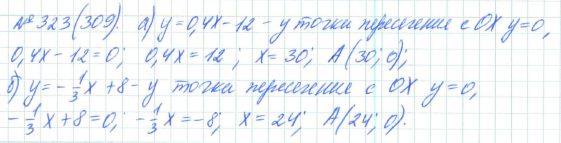 № 323 (309). а) y = 0,4x - 12 - у точки пересечение с OX y = 0,
0,4x - 12 = 0; 0,4x = 12; x = 30; A(30; 0);
б) y = -1/3 x + 8 - у точки пересечение с OX y = 0,
-1/3 x + 8 = 0; -1/3 x = -8; x = 24; A(24; 0).